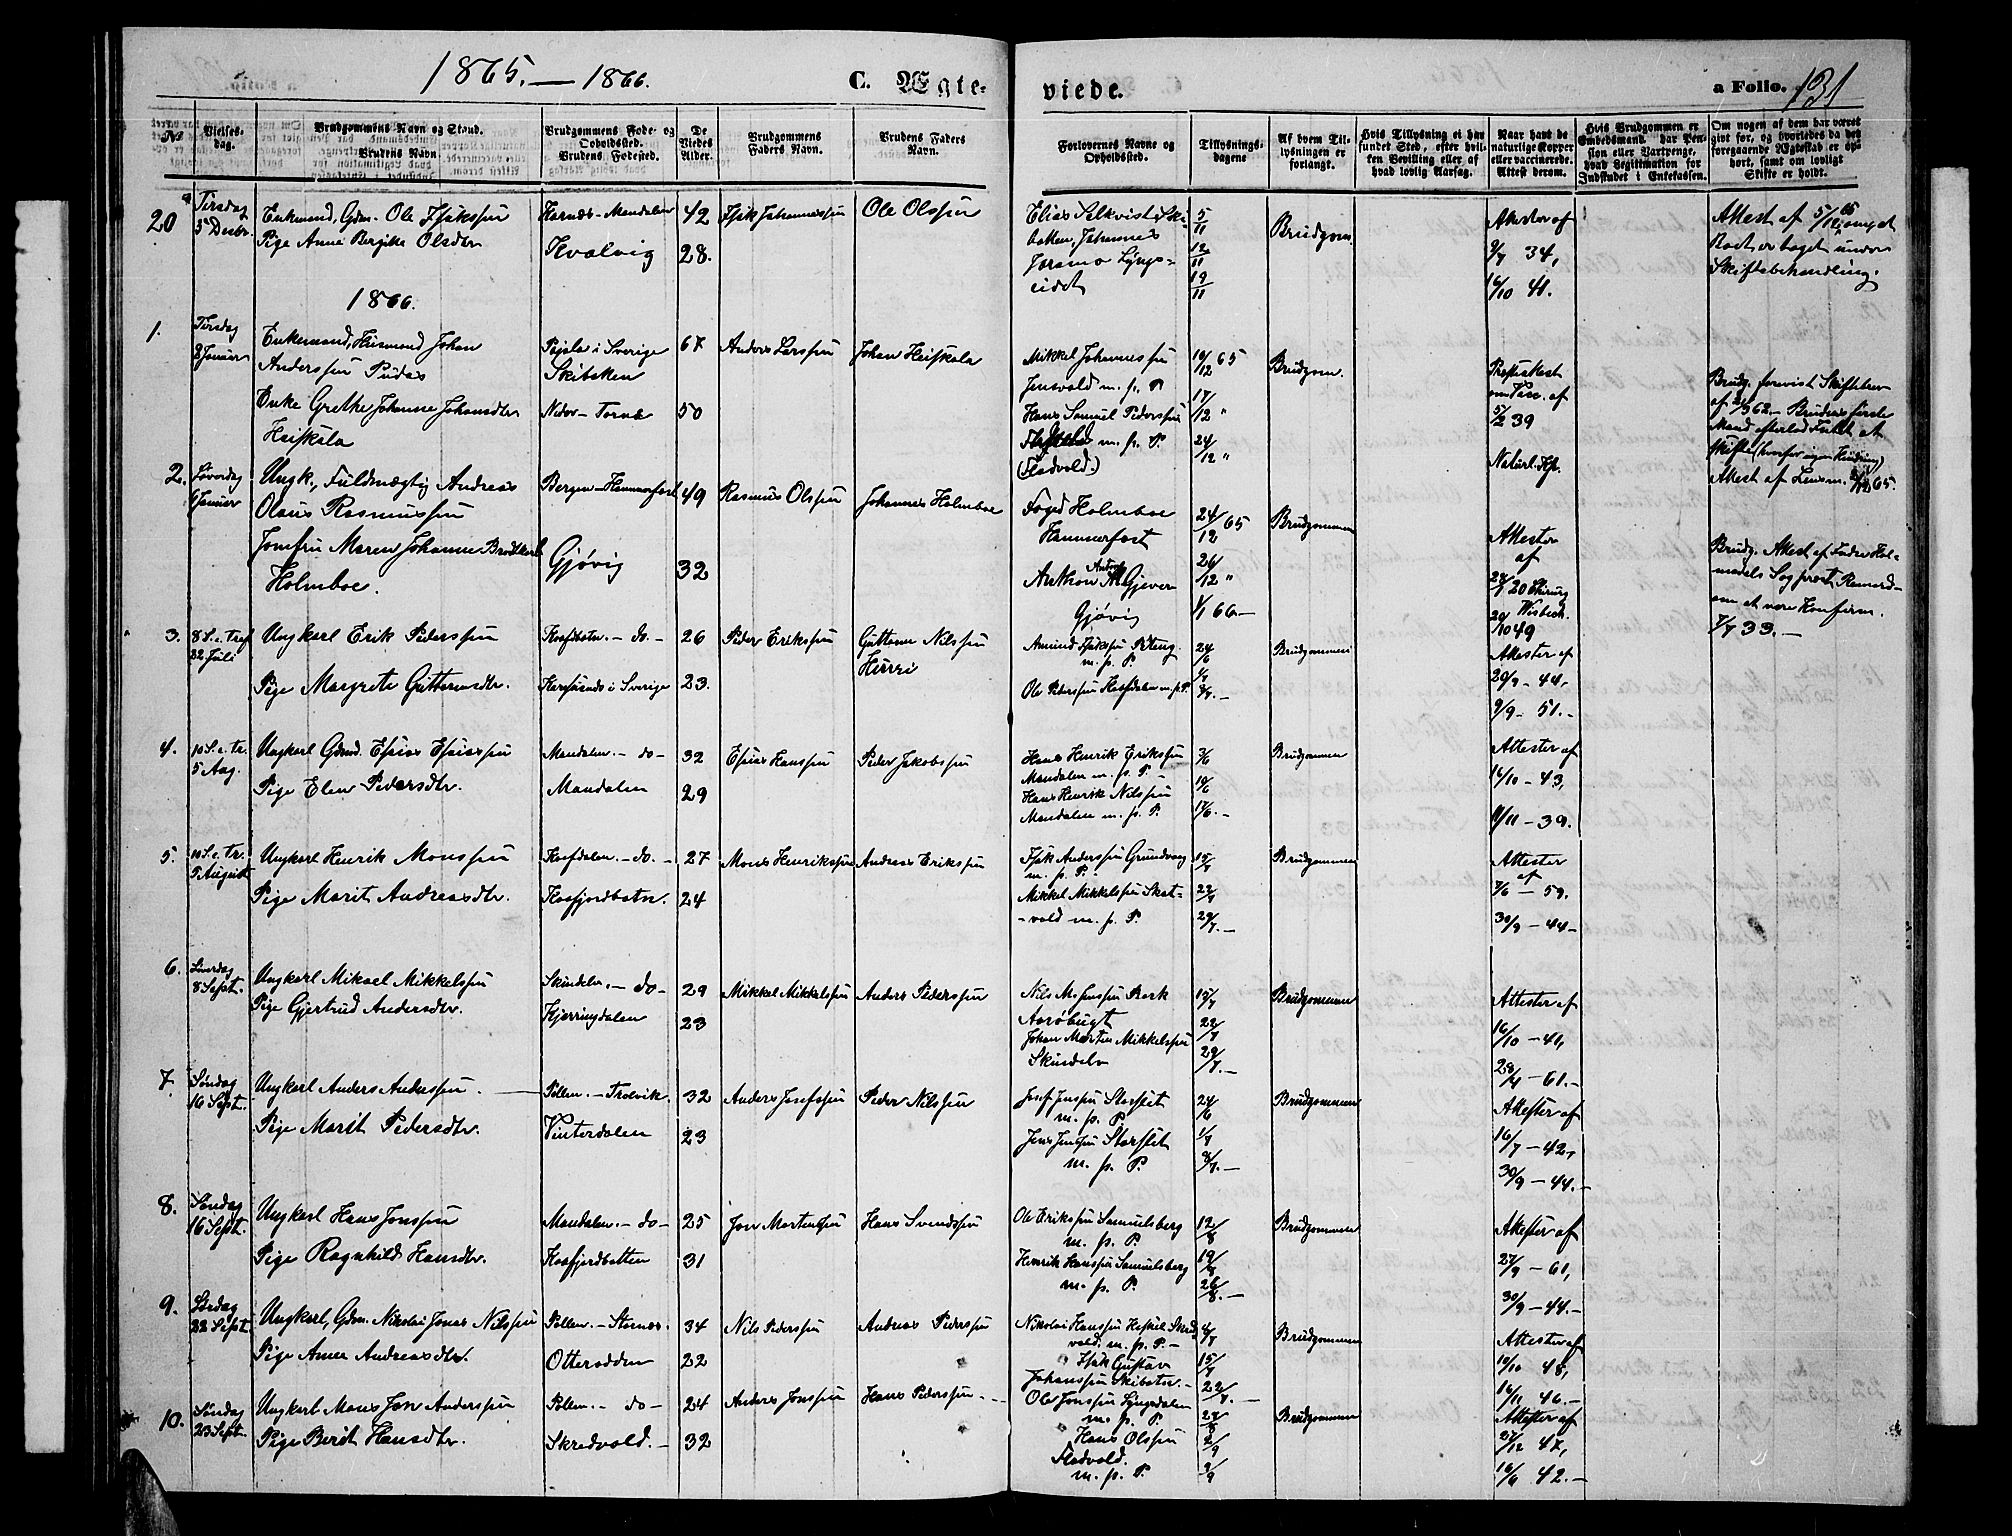 1865. — 1866.
C. Ægte-
viede.
a Folio. 131
No
Vielses-dag.
Brudgommens Navn og Stand.
Brudens Navn
Brudgommens Føde- og Opholdssted.
Brudens Fødested.
De Viedes Alder.
Brudgommens Faders Navn.
Brudens Faders Navn.
Forlovernes Navne og Opholdssted.
Tillysnings-dagene
Af hvem Til-lysningen er forlangt.
Hvis Tillysning ei har fundet Sted, efter hvil-ken Bevilling eller af hvad lovlig Aarsag.
Naar havt de naturlige Kopper eller vaccinerede. Attest derom.
Hvis Brudgommen er Embedsmand, har Pen-sion eller Vartpenge, hvad Legitimation for Indskudet i Enkekassen.
Om nogen af dem har været givt før, og hvorledes da det foregaaende Ægteskab er op-hørt, samt om lovligt Skifte er holdt.
20 Tirsdag 5 Decbr.
Enkemand, Gdm. Ole Isaksen
Pige Anne Bergitte Olsdtr
Mandalen
Kvalvig
42
28.
Isak Johannessen
Ole Olssen
Johannes
Lyngs-
eidet
5/11
12/11
19/11
Brudgom.
Attester af
9/7 34,
16/10 41.
Attest af 5/12 65
Boet er taget under
Skiftebehandling.
1866.
1. Tirsdag 2 Januar
Enkemand, Husmand Johan
Anderssen Pudas
Enke Grethe Johanne Johansdtr
Heiskala
Pajala i Sverige
Skibotten
Neder-Torneå
67
50
Anders Larssen
Johan Heiskala
Mikkel Johannessen
m. p. P
Hans Samuel Pederssen
m. p. P.
(Fladvold.)
10/12 65
17/12 "
24/12 "
Brudgom.
Præsteattest
om Vacc. af
5/2 39
Naturl. Kp.
Brudg. forevist Skiftebrev
af 21/3 62 — Brudens første
Mand efterlod Intet at
skifte (hvorfor ingen Hindring)
Attest af Lensm. 65.
2. Løverdag 6 Januar
Ungk., Fuldmægtig Andreas
Olaus Rasmussen
Jomfru Maren Johanne Brodtkorb
Holmboe.
Bergen — Hammerfest
Gjøvig
49
32
Rasmus Olssen
Johannes Holmboe
Foged Holmboe
Hammerfest
Gjæver
Gjøvig
24/12 65
26/12 "
1/1 66 —
Brudgommen
Attester
af
20 Chirurg
Wisbech
20/10 49
Brudg. Attest af
Sogneprest
om at være Konfirm.
7/7 33. —
3. 8 S. e. Tref. 22 Juli
Ungkarl Erik Pederssen
Pige Margrete Guttormsdtr.
Kaafjbotn. — do —
Karesuando i Sverige
26
23.
Peder Erikssen
Guttorm Nilssen
Hurri
Amund Isakssen
m. p. P.
Ole Pederssen Kaafdalen m. p. P.
24/6
1/7
8/7. —
Brudgommen
Attester af
20/9 — 44,
9/9 — 51. —
4. 10 S. e. Tr. 5 Aug.
Ungkarl Gdmd. Esaias Esaiassen
Pige Elen Pedersdtr.
Mandalen. — do —
Mandalen
32
29
Esaias Hanssen
Peder Jakobssen
Hans Henrik Erikssen
Mandalen m. p. P. —
Hans Henrik Nilssen
Mandalen m. p. P.
3/6
10/6
17/6. —
Brudgommen
Attester af
16/10 — 43,
11/11 — 39.
5. 10 S. e. Tr. 5 August
Ungkarl Henrik Monssen
Pige Marit Andreasdtr.
Kaafdalen. — do. —
Kaafjordbotn.
27
24
Mons Henrikssen
Andreas Erikssen
Isak Anderssen Grundvang
m. p. P.
Mikkel Mikkelssen Skat-
-vold m. p. P.
15/7
22/7
29/7. —
Brudgommen
Attester
af
7/6 — 59.
30/9 — 44 —
6. Løverdag 8 Sept.
Ungkarl Mikael Mikkelssen
Pige Gjertrud Andersdtr.
Skindelv. — do —
Kjerringdalen
29
23
Mikkel Mikkelssen
Anders Pederssen
Aarøbugt
Johan Martin Mikkelssen
Skindelv
15/7
22/7
29/7. —
Brudgommen
Attester af
16/10 — 41,
28/4 — 61. —
7. Søndag 16 Sept.
Ungkarl Anders Anderssen.
Pige Marit Pedersdtr.
Pollen. — Trolvik.
Vinterdalen
32
23
Anders Josefssen
Peder Nilssen
Josef Jenssen Storslet
m. p. P.
Jens Jenssen Storslet
m. p. P.
24/6
1/7
8/7. —
Brudgommen
Attester af
16/7 — 42,
30/9 — 44. —
8. Søndag 16 Sept.
Ungkarl Hans Jonssen
Pige Ragnhild Hansdtr.
Mandalen. — do —
Kaafjordbotten
25
31
Jon Mortenssen
Hans Svendssen
Ole Erikssen Samuelsberg
m. p. P.
Henrik Hanssen Samuelsberg
m. p. P.
12/8
19/8
26/8. —
Brudgommen
Attester af
27/9 — 61,
30/9 — 44. —
9. Lørdag 22 Sept.
Ungkarl, Gdm. Nikolai Jonas Nilssen
Pige Anne Andreasdtr.
Pollen. — Stornæs.
Otterodden
34
22
Nils Pederssen
Andreas Pederssen
Nikolai Hanssen Heskil Skred
vold. m. p. P. —
Isak Gustav
Johanssen Skibotn. —
15/7
22/7. —
Brudgommen
Attester af
10/10 48,
16/11 46. —
10. Søndag 23 Sept.
Ungkarl Mons Jon Anderssen
Pige Berit Hansdtr.
Pollen. — do —
Skredvold. —
24
32
Anders Jonssen
Hans Pederssen. —
Ole Jonssen Lyngsdalen
m. p. P.
Hans Olssen
Fladvold.
m. p. P.
2/9
9/9
Brudgommen
Attester af
27/12 47,
16/6 42. —